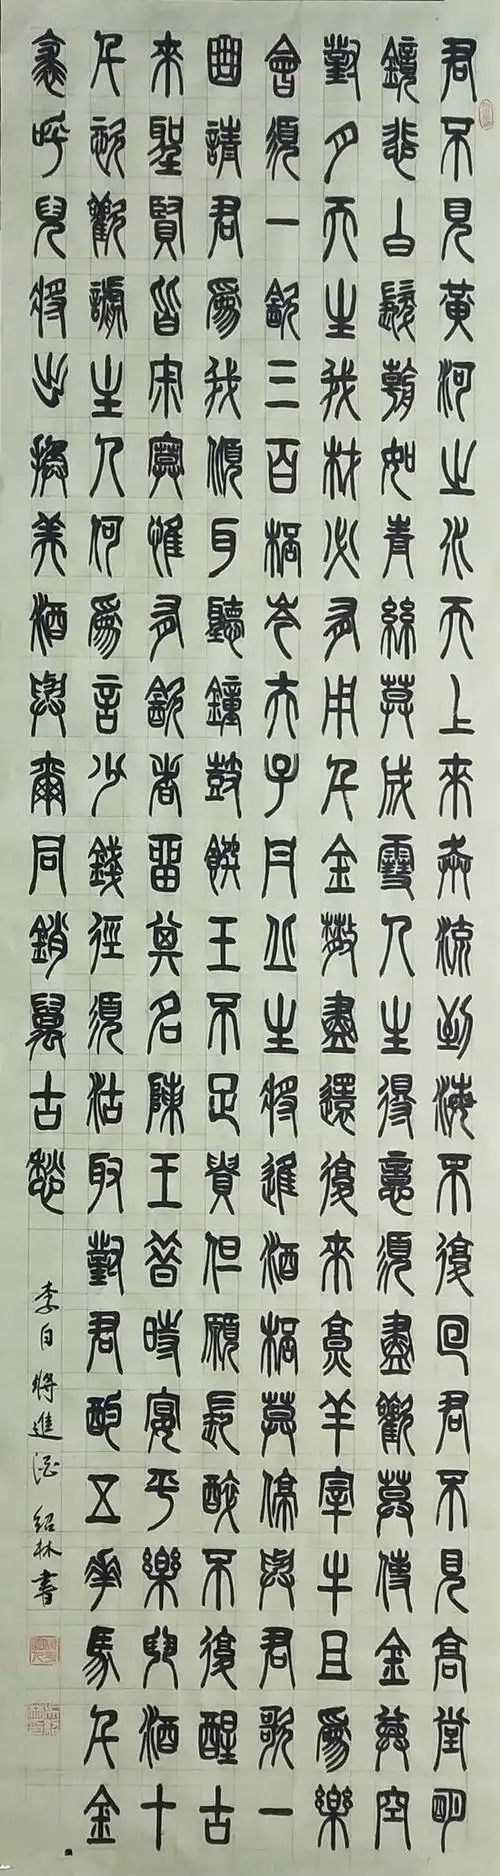 君不見黃河之水天上來奔流到海不復回君不見高堂明
鏡悲白髮朝如青絲莫成雪人生得意須盡歡莫使金尊空
對月天生我材必有用千金散盡還復來烹羊宰牛且爲樂
會須一飲三百杯岑夫子丹丘生將進酒杯莫停與君歌一
曲請君爲我傾耳聽鐘鼓饌玉不足貴但願長醉不復醒古
來聖賢皆寂寞惟有飲者留其名陳王昔時宴平樂斗酒十
千恣歡謔主人何爲言少錢徑須沽取對君酌五花馬千金
裘呼兒將出換美酒與爾同銷萬古愁
李白將進酒 紹林書